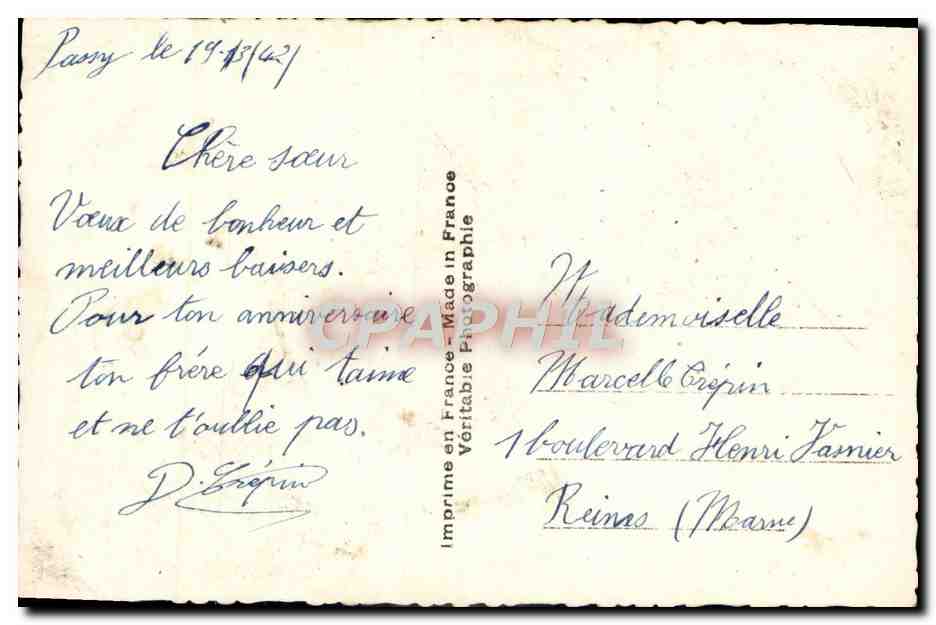 Passy le 19-13/42/
Chère sœur
Vœux de bonheur et
meilleurs baisers.
Pour ton anniversaire
ton frére qui taime
et ne t'oublie pas.
D. Crépin
Imprime en France - Made in France
Véritable Photographie
CPAPHIL
Mademoiselle
Marcelle Crépin
1 boulevard Henri Vasnier
Reims (Marne)